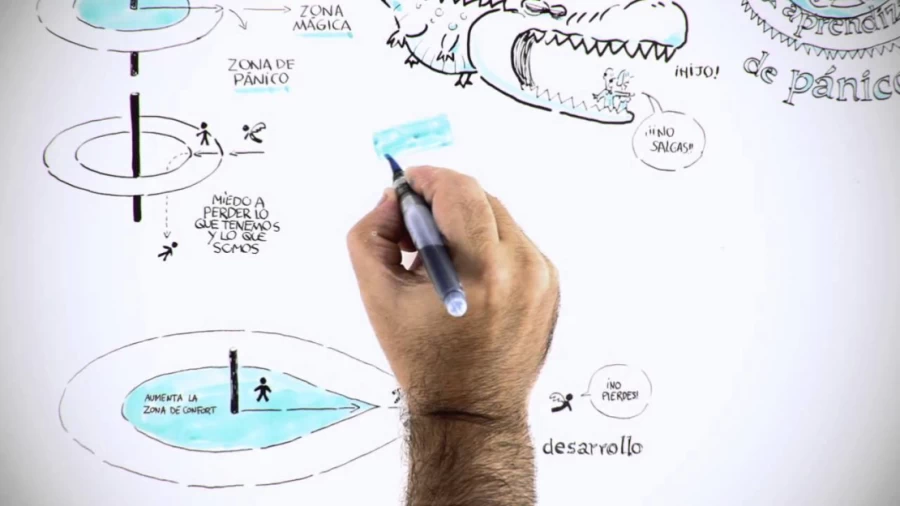 ZONA
MÁGICA
ZONA DE
PÁNICO
MIEDO A
PERDER LO
QUE TENEMOS
Y LO QUE
SOMOS
¡HIJO!
¡¡NO
SALGAS!!
aprendiz
de pánico
AUMENTA LA
ZONA DE CONFORT
¡NO
PIERDES!
desarrollo